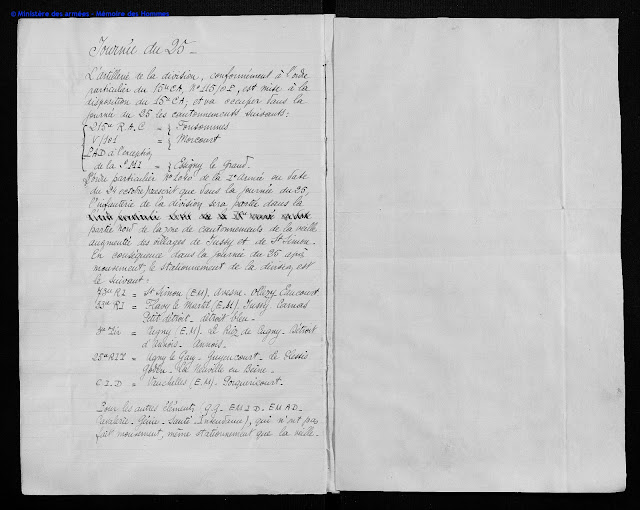 © Ministère des armées - Mémoire des Hommes
Journée du 25 -
L'artillerie de la division, conformément à l'ordre
particulier du 15e CA, N° 115/OP, est mise à la
disposition du 15e CA, et va occuper dans la
journée du 25 les cantonnements suivants :
2/5e R.A.C = Fonsommes
V/101 = Morcourt
PAD à l'exception
de la S.M.I = Essigny le Grand.
L'ordre particulier N° de la 1e Armée en date
du 24 octobre, prescrit que dans la journée du 25,
l'infanterie de la division sera portée dans la
partie nord de la zone de cantonnements de la veille
augmentée des villages de Jussy et de St Simon.
En conséquence dans la journée du 25 après
mouvement, le stationnement de la division est
le suivant :
RI = St Simon (E.M). Avesne. Ollézy Eaucourt
RI = Flavy le Martel (E.M). Jussy
Petit détroit - détroit bleu -
3e Tir = Cugny (E.M). Le Riez de Cugny - Détroit
d'Annois - Annois -
RIT = Ugny le Gay - Guyencourt - Le Plessis
Godin - La Neuville en Beine -
C.I.D = Vouchelles (E.M). Porquericourt -
Pour les autres éléments (Q.G - EM.I.D - EM.A.D -
Cavalerie - Génie - Santé - Intendance), qui n'ont pas
fait mouvement, même stationnement que la veille -